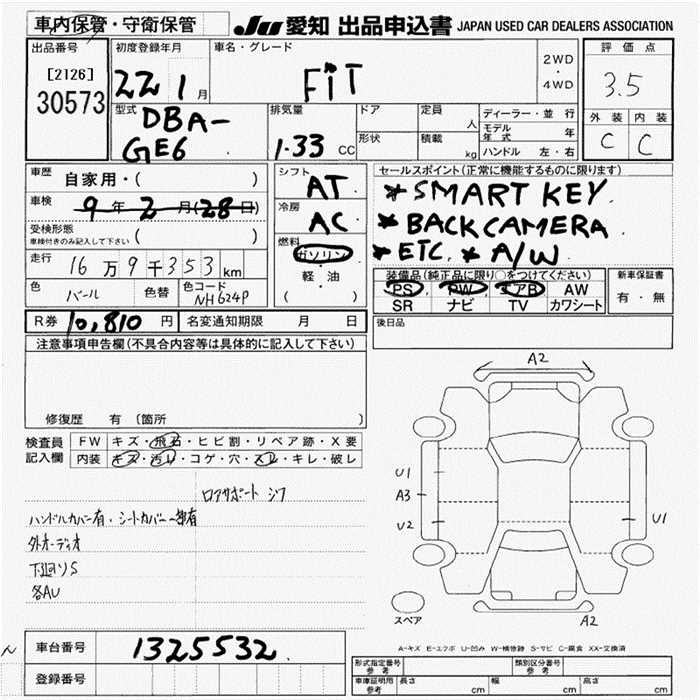 車内保管・守衛保管
JU 愛知 出品申込書 JAPAN USED CAR DEALERS ASSOCIATION
出品番号
[2126]
30573
初度登録年月
22 1 月
車名・グレード
FiT
2WD
・
4WD
評価点
3.5
外装 内装
C C
型式
DBA-
GE6
排気量
1.33 CC
ドア
形状
定員
人
積載
kg
ディーラー・並行
モデル年式 年
ハンドル 左・右
車歴
自家用・( )
車検
9年2月(28日)
受検形態
車検付きのみ記入して下さい ( )
走行
16万9千353km
色
パール
色替
色コード
NH624P
シフト
AT
冷房
AC
燃料
ガソリン
・
軽・油
( )
セールスポイント(正常に機能するものに限ります)
* SMART KEY.
* BACK CAMERA
* ETC. * A/W
装備品(純正品に限り○をつけてください)
PS PW エアB AW
SR ナビ TV カワシート
新車保証書
有・無
R券 10,810 円
名変通知期限 月 日
後日品
注意事項申告欄(不具合内容等は具体的に記入して下さい)
修復歴 有 〔箇所 〕
検査員
記入欄
FW キズ・飛石・ヒビ割・リペア跡・X要
内装 キズ・汚レ・コゲ・穴・スレ・キレ・破レ
ロアサポート ジワ
ハンドルカバー有・シートカバー一部有
外オーディオ
下廻りS
各AU
A2
U1
A3
U2
U1
A2
スペア
A-キズ E-エクボ U-凹み W-補修跡 S-サビ C-腐食 XX-交換済
車台番号 1325532
登録番号
形式指定番号
参考
類別区分番号
参考
車庫証明用
参考
長さ cm 幅 cm 高さ cm